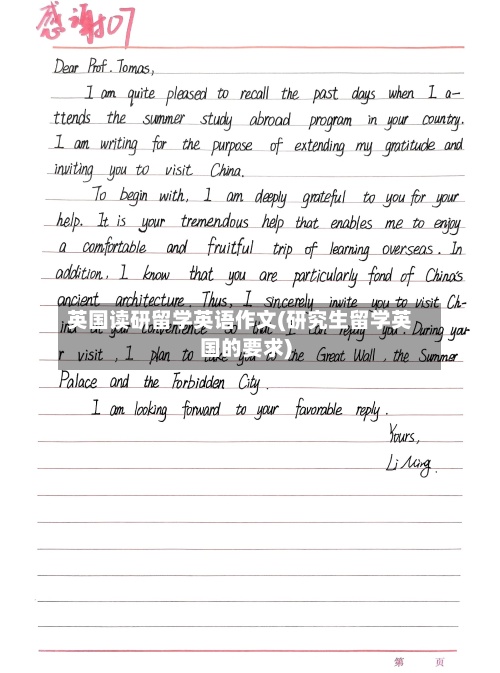 感谢07
Dear Prof. Tomas,
I am quite pleased to recall the past days when I a-
ttends the summer study abroad program in your country.
I am writing for the purpose of extending my gratitude and
inviting you to visit China.
To begin with, I am deeply grateful to you for your
help. It is your tremendous help that enables me to enjoy
a comfortable and fruitful trip of learning overseas. In
addition, I know that you are particularly fond of China's
ancient architecture. Thus, I sincerely invite you to visit Ch-
英国读研留学英语作文(研究生留学英
国的要求)
you. During you-
r visit, I plan to take you to the Great Wall, the Summer
Palace and the Forbidden City.
I am looking forward to your favorable reply.
Yours,
Li Ming.
第 页